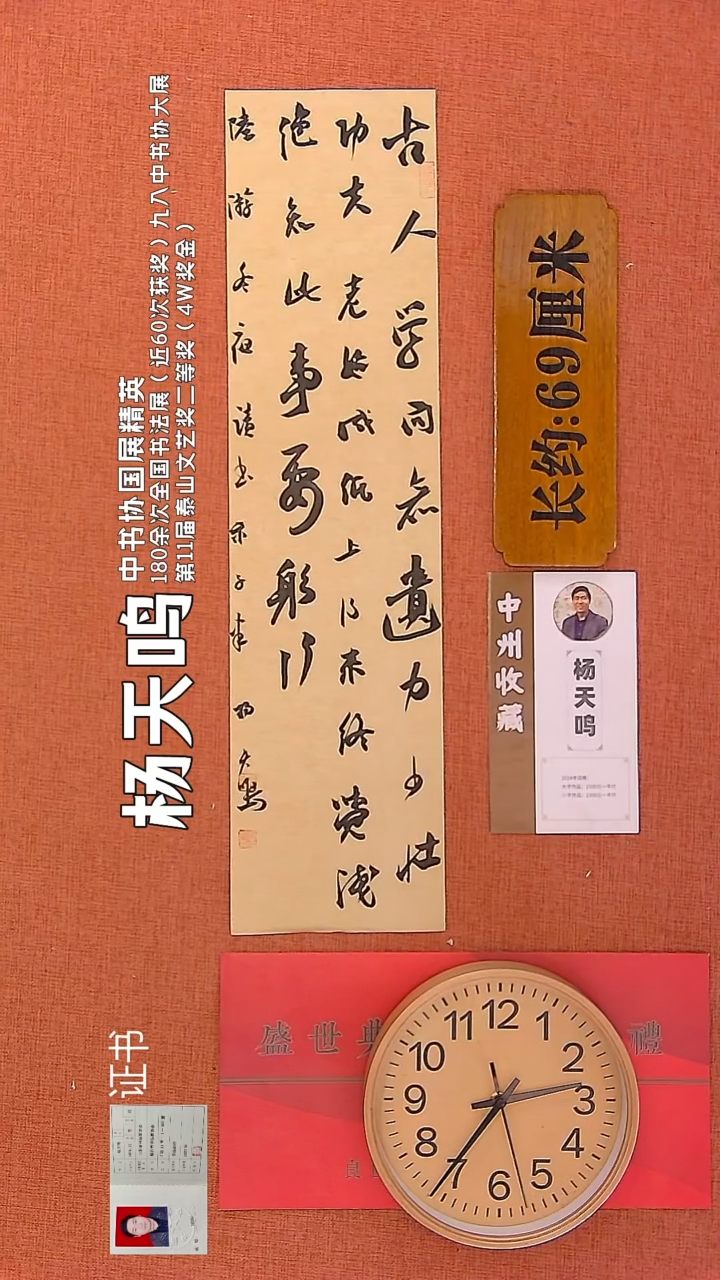 杨天鸣
中书协国展精英
180余次全国书法展（近60次获奖）九八中书协大展
第11届泰山文艺奖二等奖（4W奖金）
古人学问无遗力少壮
功夫老始成纸上得来终觉浅
绝知此事要躬行
陆游冬夜读书示子聿 杨天鸣
长约:69厘米
中州收藏
杨天鸣
证书
盛世典
禮
12
1
2
3
4
5
6
7
8
9
10
11